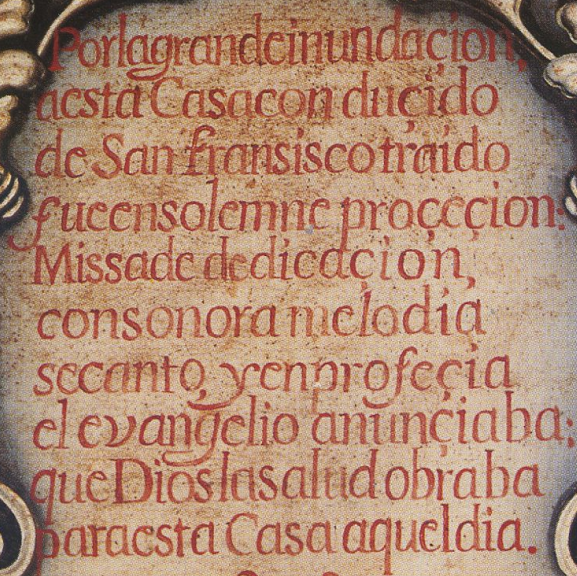 Por la grande inundaçion,
a esta Casa conduçido
de San fransisco traido
fue en solemne proçeçion:
Missa de dedicaçion,
con sonora melodia
se canto, y en profeçia
el evangelio anunçiaba;
que Dios la salud obraba
para esta Casa aquel dia.